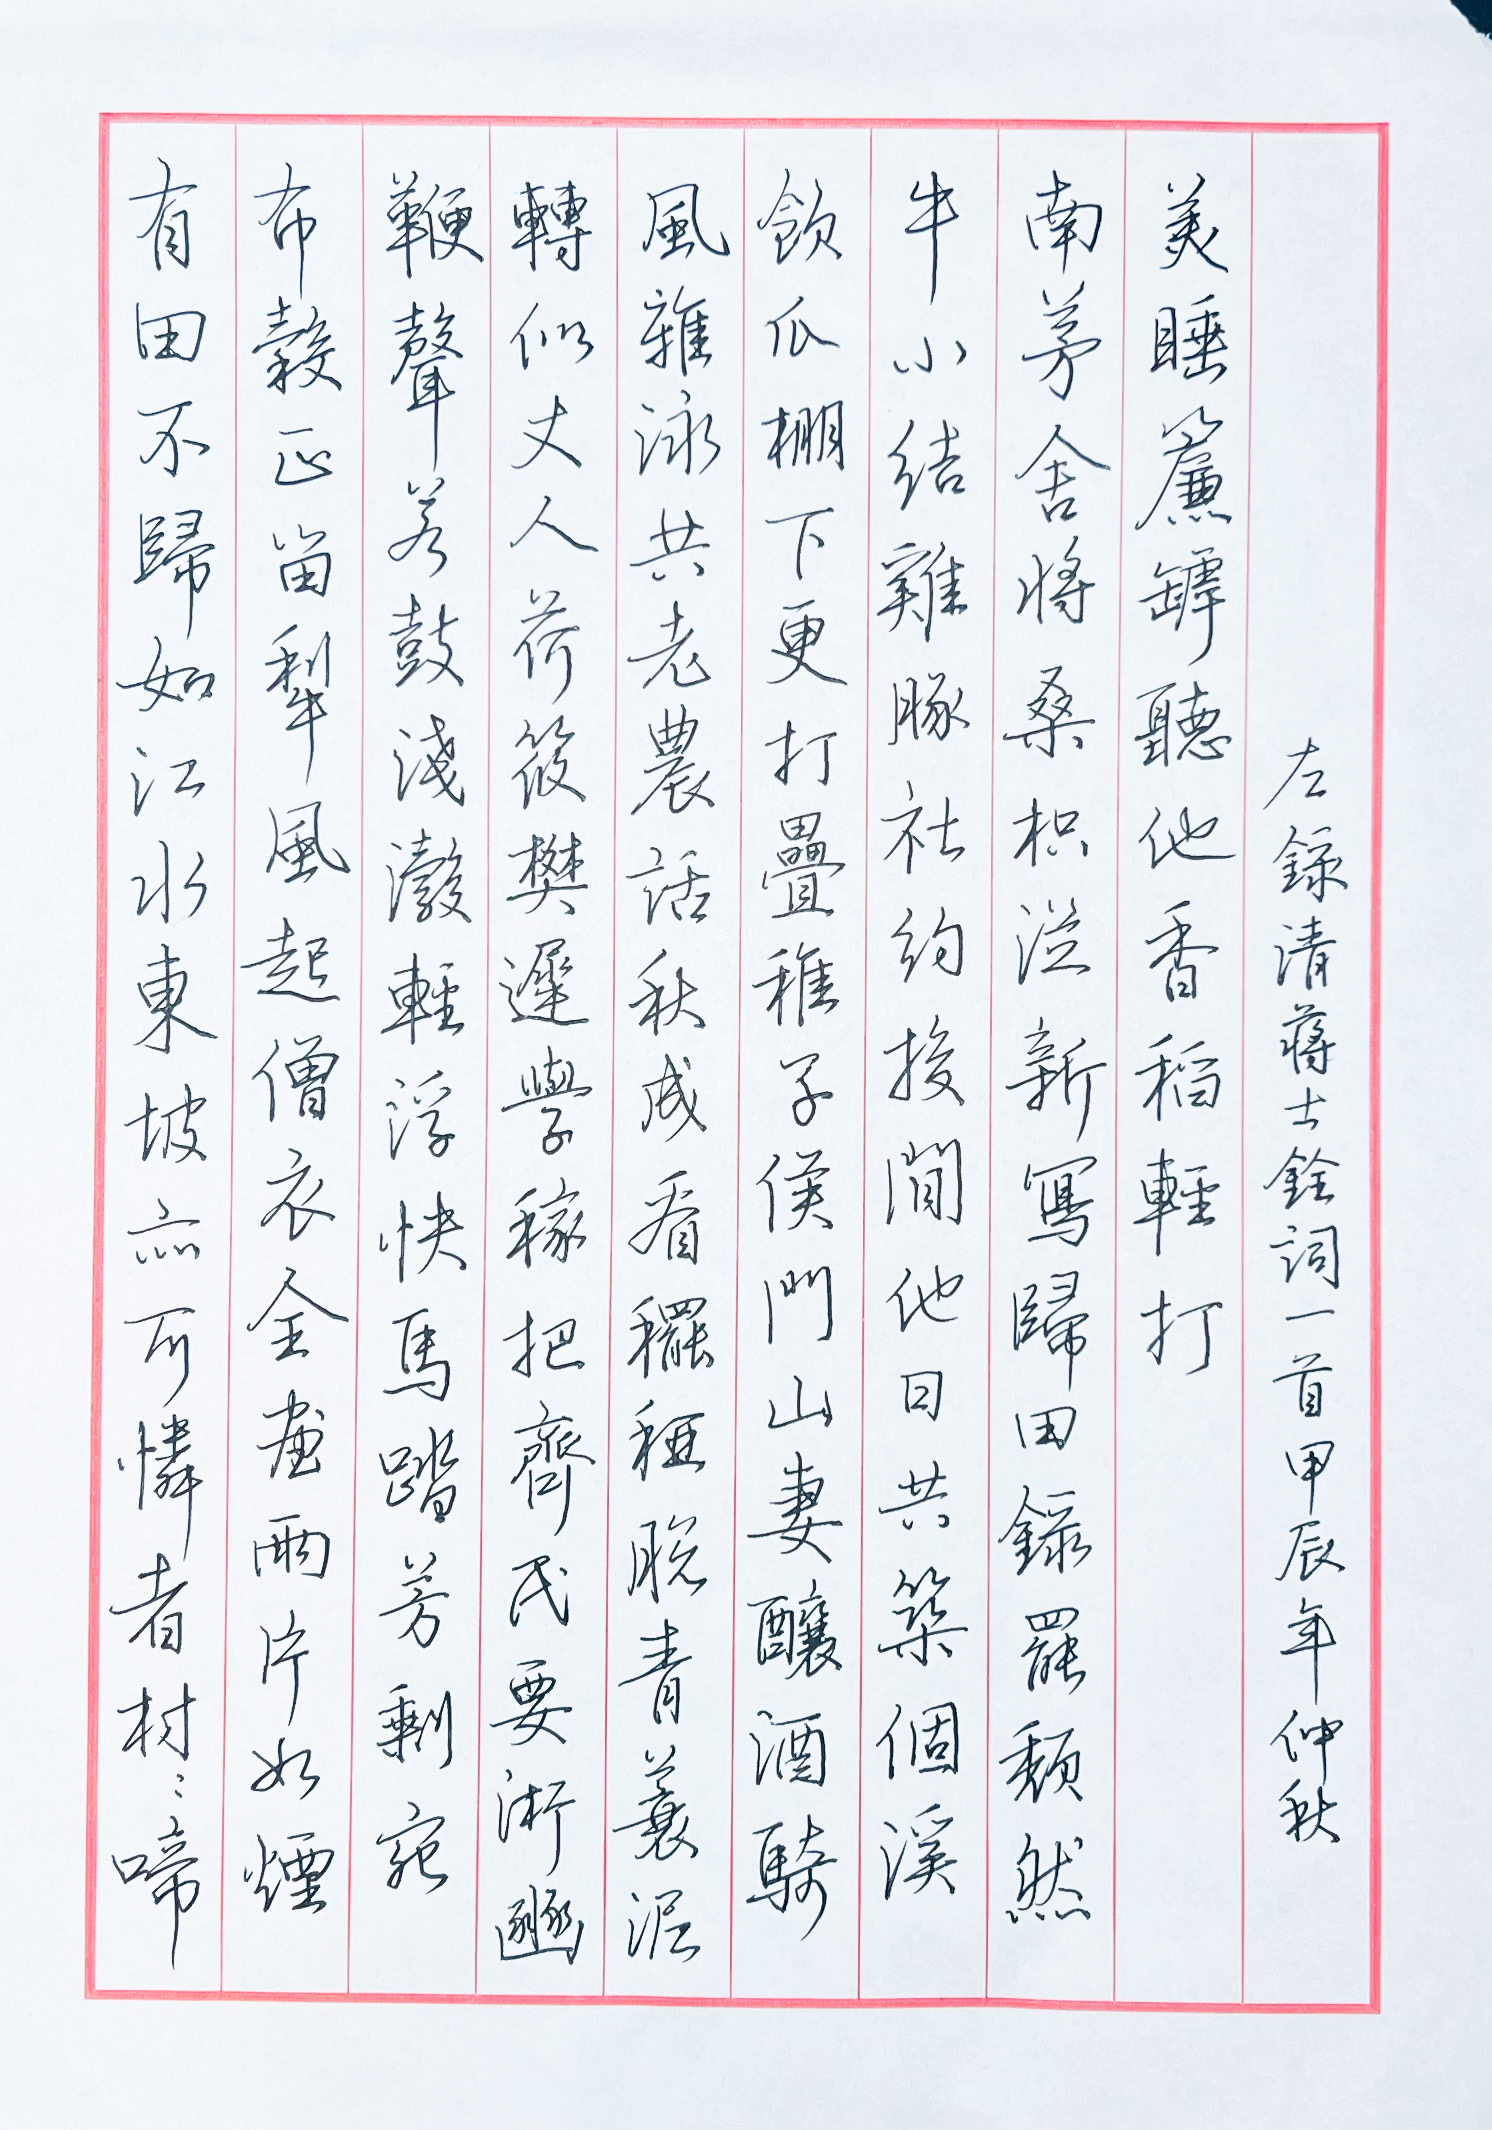 有田不歸如江水東坡亦可憐者村〻啼
布穀正畱犂風起僧衣全畫雨片如煙
鞭聲若鼓淺瀫輕浮快馬踏芳剩宛
轉似丈人荷筱樊遲學稼把齊民要術豳
風雜泳共老農話秋成看穲稏脫青蓑泥
飲瓜棚下更打疊稚子候門山妻釀酒騎
牛小結雞豚社約投閒他日共築個溪
南茅舍將桑枳從新寫歸田錄罷頹然
美睡簾罅聽他香稻輕打
左錄清蔣士銓詞一首甲辰年仲秋